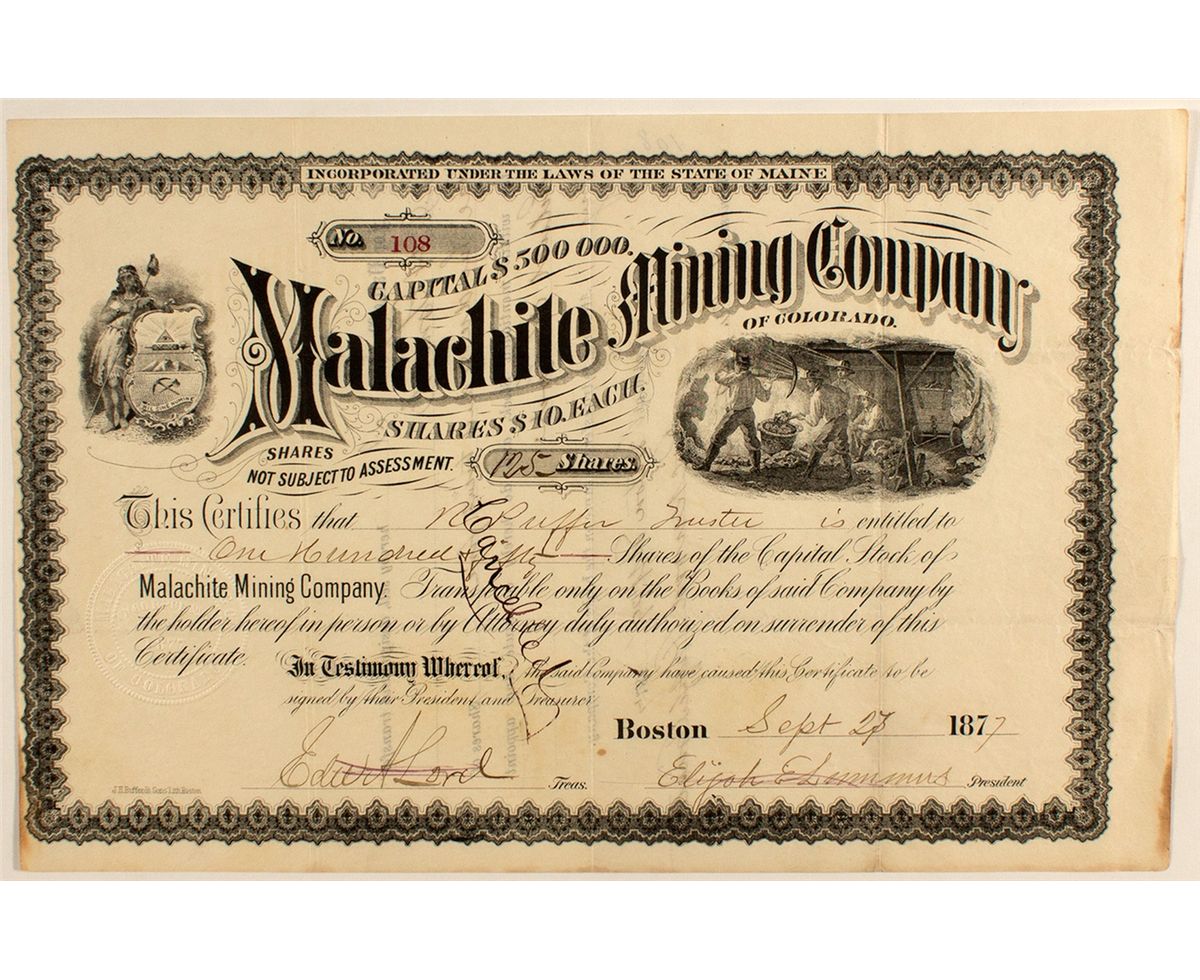 INCORPORATED UNDER THE LAWS OF THE STATE OF MAINE
No. 108
CAPITAL $500 000.
Malachite Mining Company
OF COLORADO.
SHARES $10. EACH.
SHARES
NOT SUBJECT TO ASSESSMENT.
125 Shares.
This Certifies that Puffer Trustee is entitled to
One Hundred Shares of the Capital Stock of
Malachite Mining Company. Transferable only on the Books of said Company by
the holder hereof in person or by Attorney duly authorized on surrender of this
Certificate. In Testimony Whereof, the said Company have caused this Certificate to be
signed by their President and Treasurer
Cancelled
Boston Sept 1877
Lord Treas. Elijah President
J.H. Bufford's Sons Lith. Boston